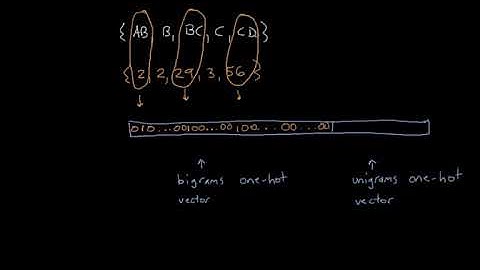 { AB B, BC, C, CD }
{ 2, 2, 29, 3, 56 }
010...00100...00,100...00...00
bigrams one-hot vector
unigrams one-hot vector